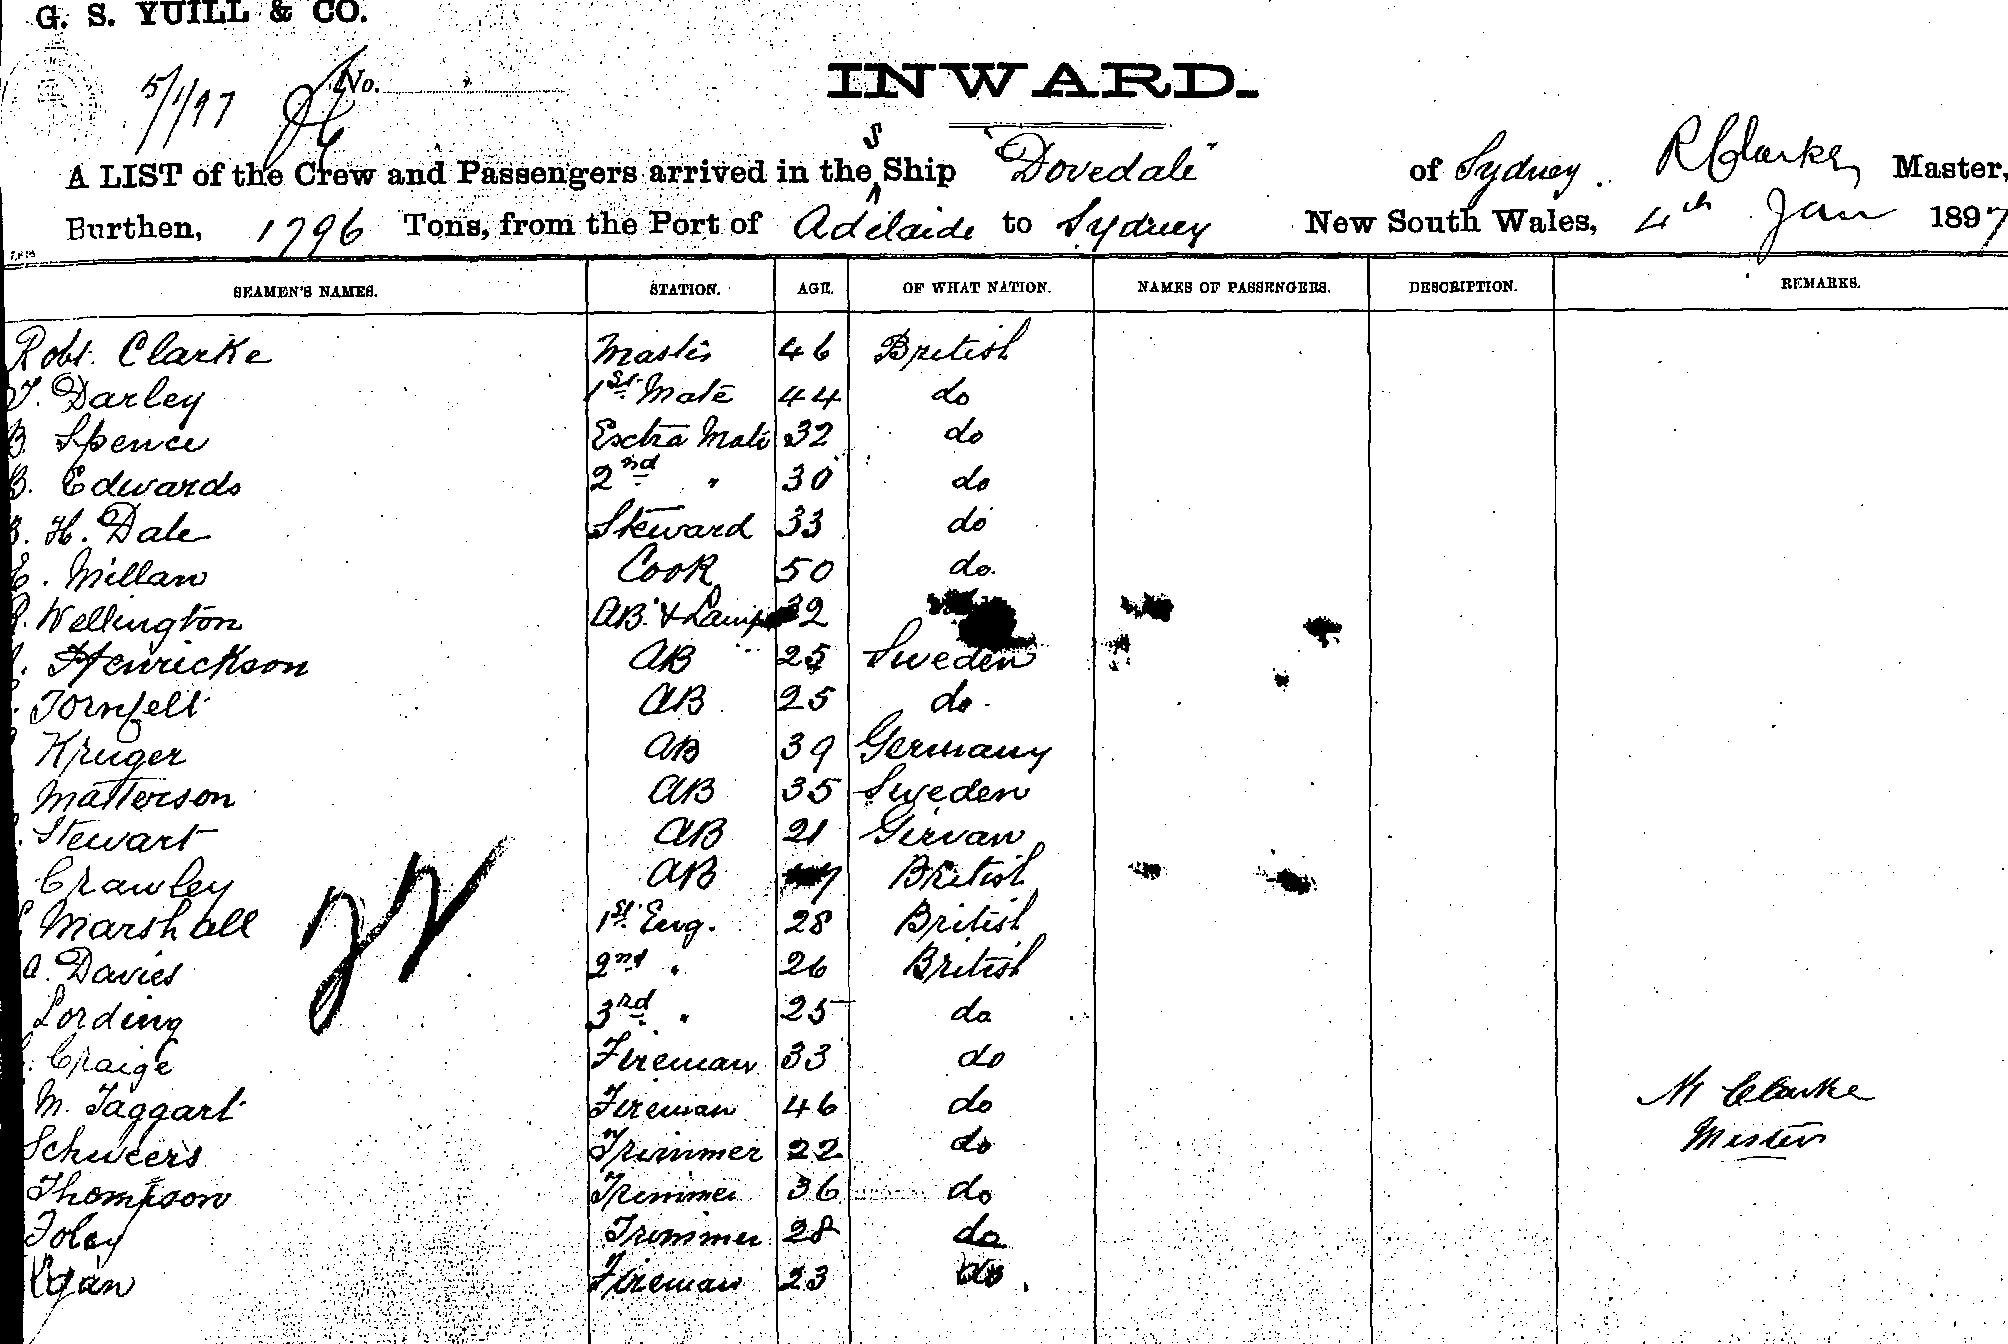 G. S. YUILL & CO.
5/1/97 No.
INWARD.
A LIST of the Crew and Passengers arrived in the S Ship "Dovedale" of Sydney. R Clarke, Master,
Burthen, 1796 Tons, from the Port of Adelaide to Sydney New South Wales, 4th Jan 1897
SEAMEN'S NAMES. STATION. AGE. OF WHAT NATION. NAMES OF PASSENGERS. DESCRIPTION. REMARKS.
Robt. Clarke Master 46 British
T. Darley 1st Mate 44 do
B. Spence Exctra Mate 32 do
B. Edwards 2nd " 30 do
H. Dale Steward 33 do
E. Millan Cook 50 do.
Wellington AB. & Lamp 32
Henrickson AB 25 Sweden
Tornfelt AB 25 do.
Kruger AB 39 Germany
Matterson AB 35 Sweden
Stewart AB 21 Girvan
Crawley AB British
Marshall 1st Eng. 28 British
A. Davies 2nd " 26 British
Lording 3rd " 25 do
Craige Fireman 33 do
M. Taggart Fireman 46 do
Schweers Trimmer 22 do
Thompson Trimmer 36 do
Foley Trimmer 28 do
Egan Fireman 23 do.
22
Clarke
Master